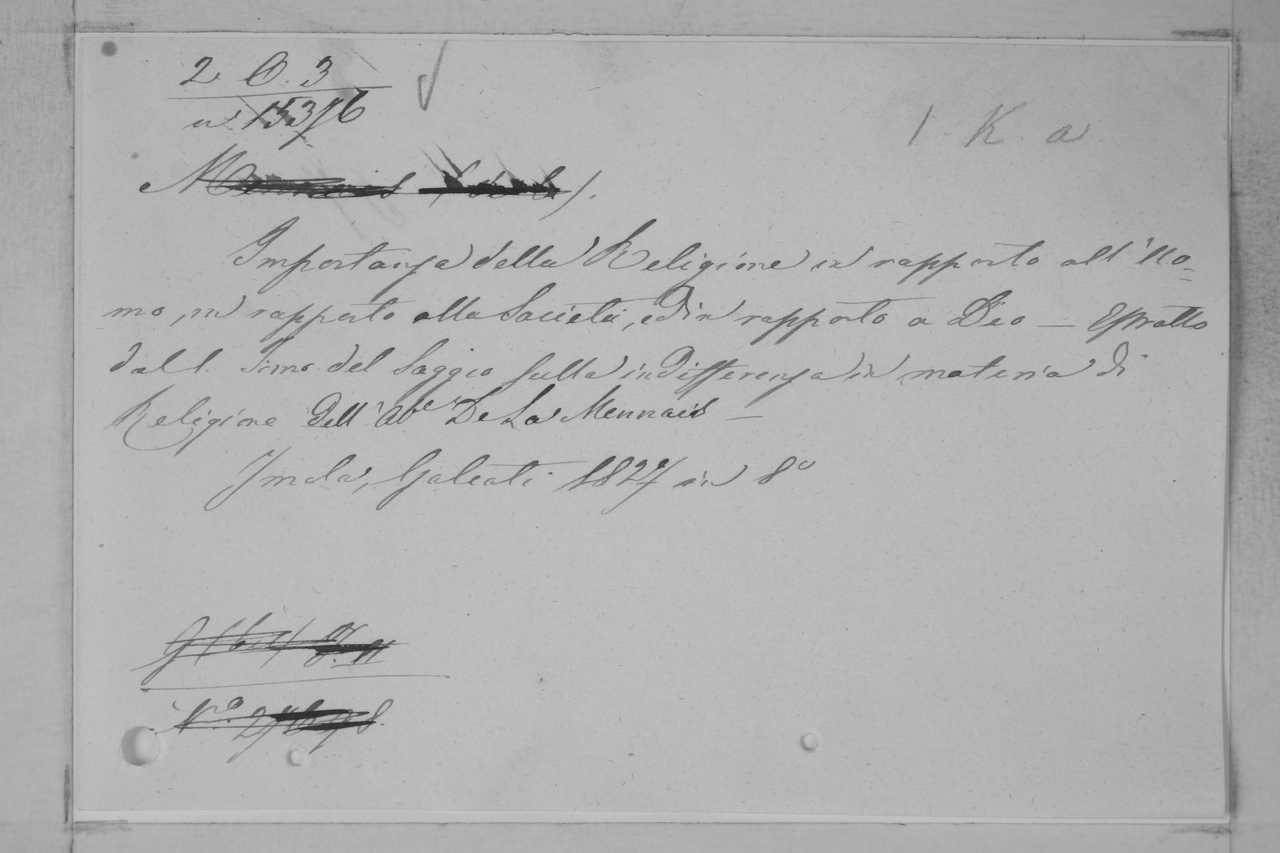 2. O. 3
1 K a
Importanza della Religione in rapporto all'Uo=
mo, in rapporto alla Società, ed in rapporto a Dio — Estratto
dal 1. Tomo del Saggio sulla indifferenza in materia di
Religione Dell' Ab.e De La Mennais —
Imola, Galeati 1827 in 8°